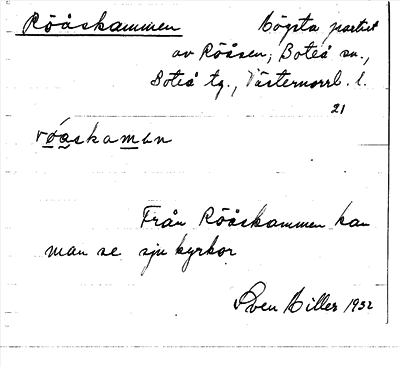 Rööskammen Högsta partiet
av Röösen, Boteå sn.,
Boteå tg., Västernorrl. l.
21
Från Rööskammen kan
man se sju kyrkor
Sven Hiller 1932